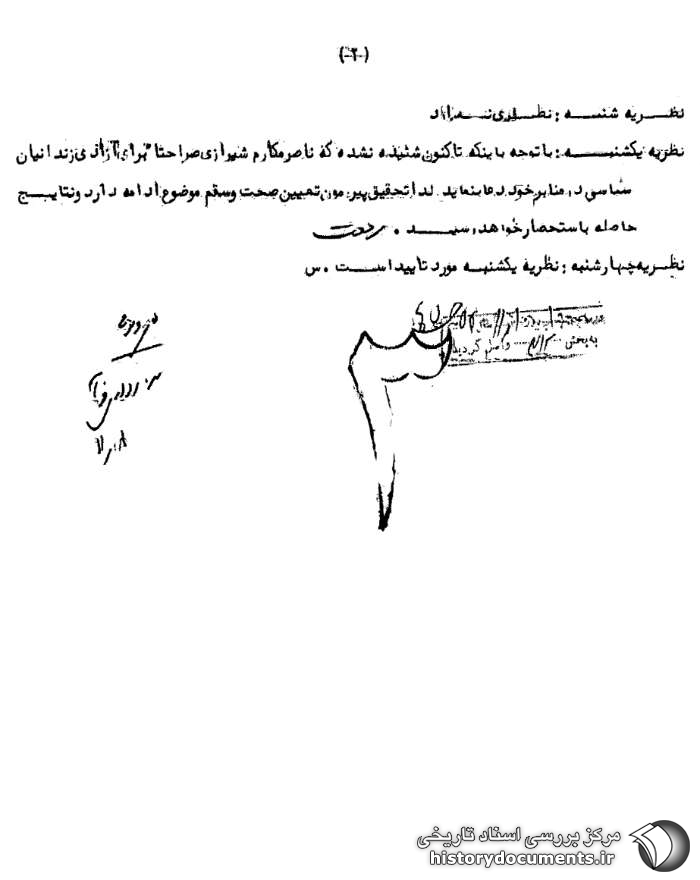 (-۲-)
نظریه شنبه : نظری ندارد
نظریه یکشنبه : با توجه باینکه تاکنون شنیده نشده که ناصر مکارم شیرازی صراحتا برای آزادی زندانیان
سیاسی در منابر خود دعا بنماید لذا تحقیق پیرامون تعیین صحت و سقم موضوع ادامه دارد و نتایج
حاصله باستحضار خواهد رسید .
نظریه چهارشنبه : نظریه یکشنبه مورد تایید است . س
به بخش واصل گردید
۳
مرکز بررسی اسناد تاریخی
historydocuments.ir